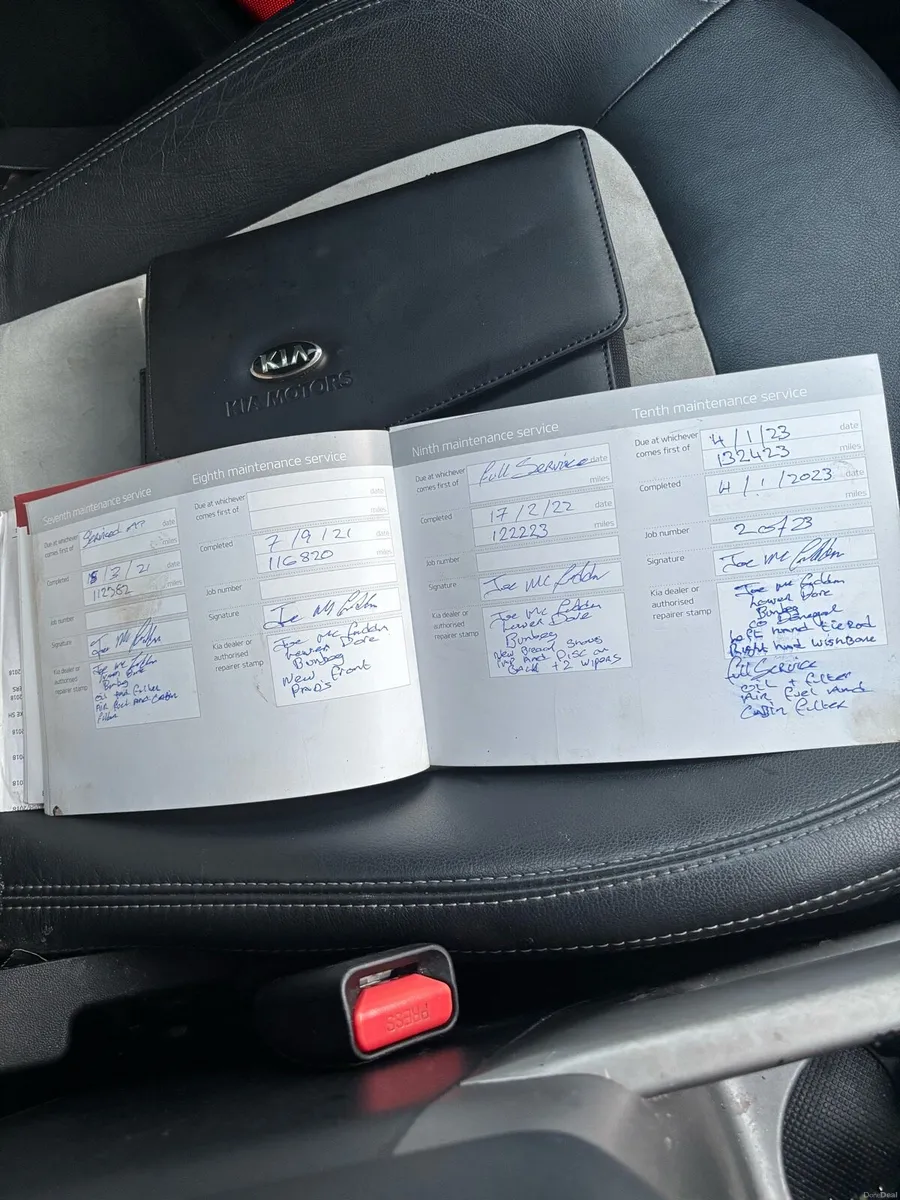 KIA
KIA MOTORS
Seventh maintenance service
Due at whichever
comes first of
Serviced AT
date
miles
Completed
8/3/21
date
112582
miles
Job number
Signature
Joe Mc Fadden
Kia dealer or
authorised
repairer stamp
Joe Mc Fadden
Lower Dore
Bunbeg
oil and Filter
Air Fuel And Cabin
Filter
Eighth maintenance service
Due at whichever
comes first of
date
miles
Completed
7/9/21
date
116820
miles
Job number
Signature
Joe Mc Fadden
Kia dealer or
authorised
repairer stamp
Joe Mc Fadden
Lower Dore
Bunbeg
New Front
Pads
Ninth maintenance service
Due at whichever
comes first of
Full Service
date
miles
Completed
17/2/22
date
122223
miles
Job number
Signature
Joe Mc Fadden
Kia dealer or
authorised
repairer stamp
Joe Mc Fadden
Lower Dore
Bunbeg
New Bread Shows
And Disc on
Back + 2 Wipers
Tenth maintenance service
Due at whichever
comes first of
4/1/23
date
132423
miles
Completed
4/1/2023
date
miles
Job number
20523
Signature
Joe Mc Fadden
Kia dealer or
authorised
repairer stamp
Joe Mc Fadden
Lower Dore
Bunbeg
co Donegal
Left hand Tie Rod
Right hand Wishbone
Full Service
oil + Filter
Air Fuel And
Cabin Filter
2018
2018
2018
PRESS
DoneDeal